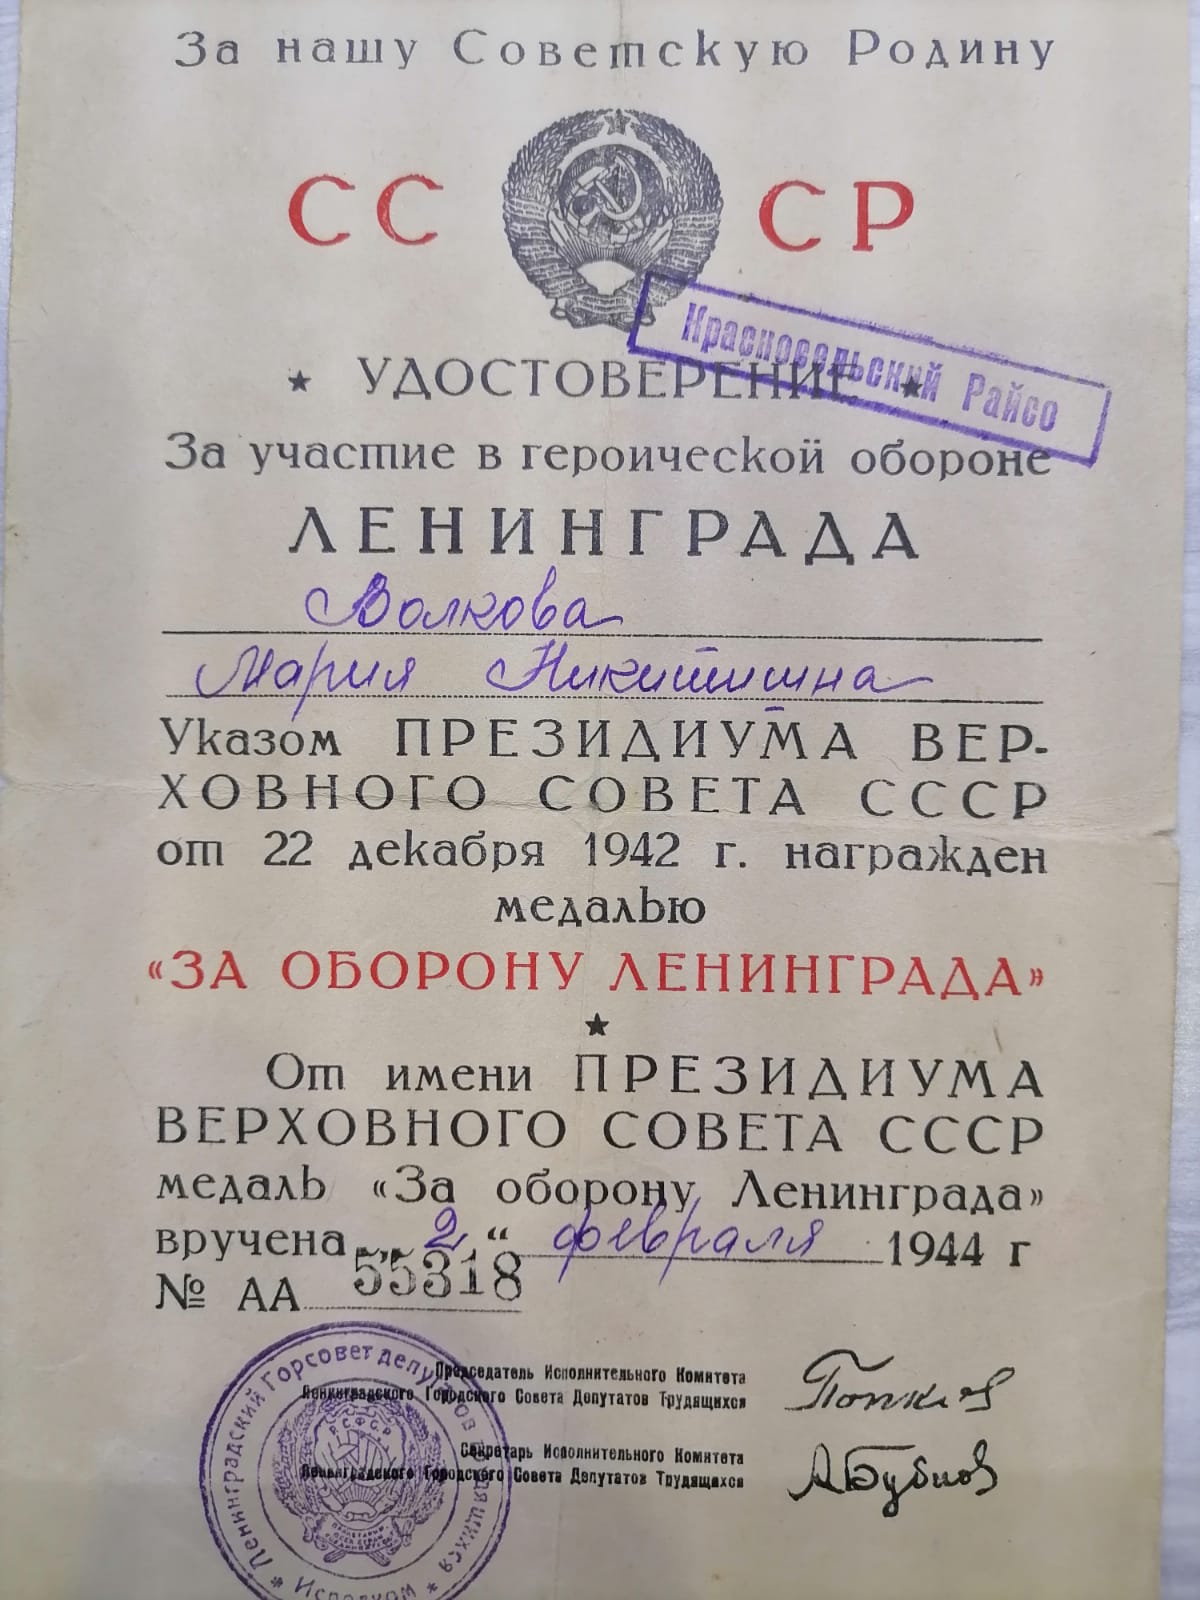 За нашу Советскую Родину
СССР
Красносельский Райсо
★ УДОСТОВЕРЕНИЕ ★
За участие в героической обороне
ЛЕНИНГРАДА
Волкова
Мария Никитишна
Указом ПРЕЗИДИУМА ВЕР-
ХОВНОГО СОВЕТА СССР
от 22 декабря 1942 г. награжден
медалью
«ЗА ОБОРОНУ ЛЕНИНГРАДА»
★
От имени ПРЕЗИДИУМА
ВЕРХОВНОГО СОВЕТА СССР
медаль «За оборону Ленинграда»
вручена „2“ февраля 1944 г
№ АА 55318
Председатель Исполнительного Комитета
Ленинградского Городского Совета Депутатов Трудящихся
Попков
Секретарь Исполнительного Комитета
Ленинградского Городского Совета Депутатов Трудящихся
АБубнов
Ленинградский Горсовет депутатов трудящихся
* Исполком *
РСФСР